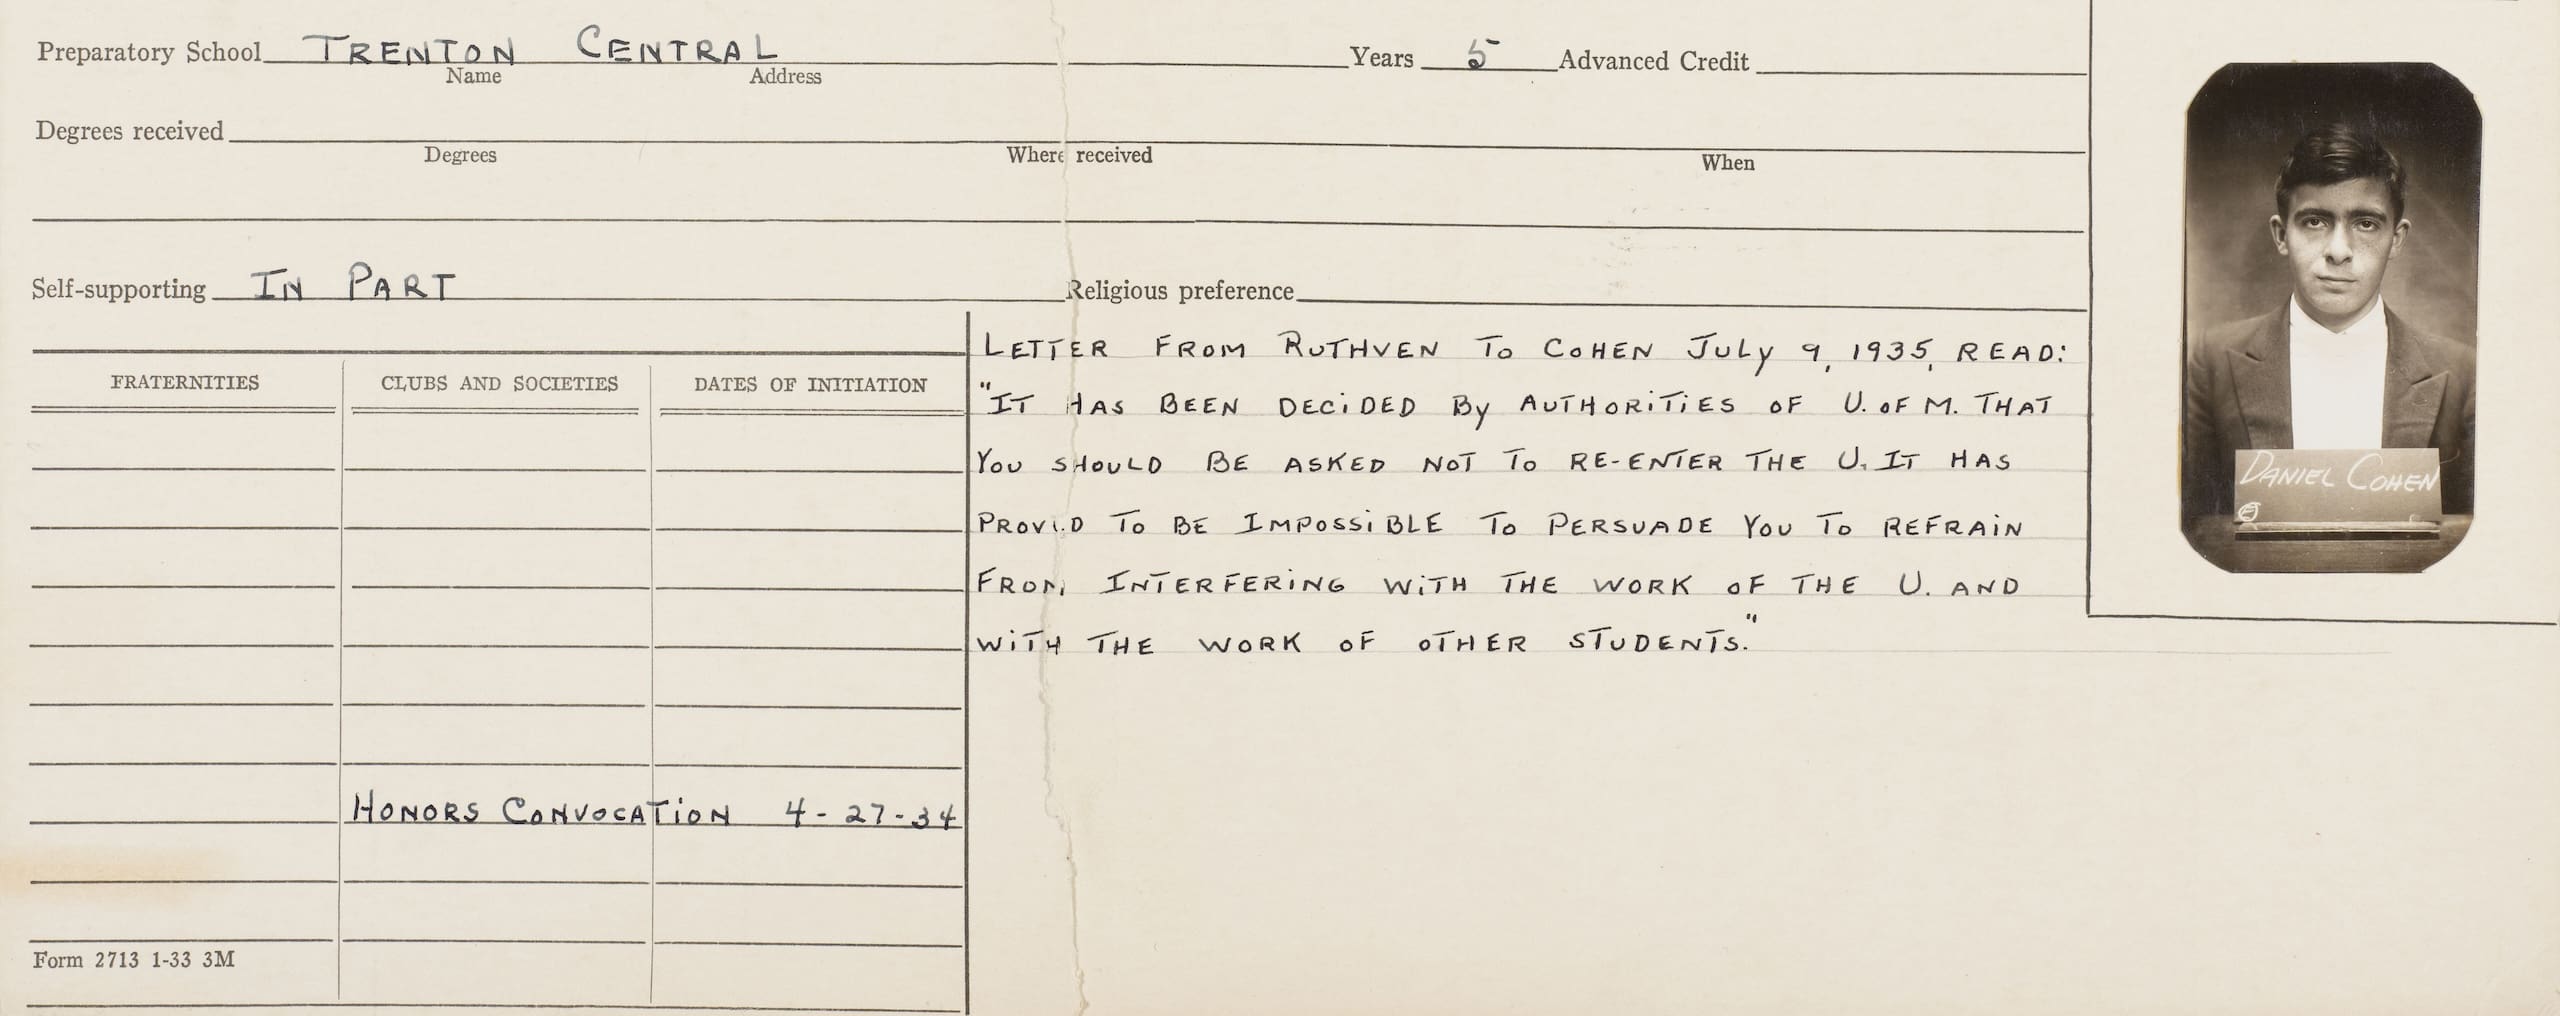 Preparatory School TRENTON CENTRAL Years 5 Advanced Credit
Name Address
Degrees received
Degrees Where received When
Self-supporting IN PART Religious preference
FRATERNITIES CLUBS AND SOCIETIES DATES OF INITIATION
HONORS CONVOCATION 4-27-34
Form 2713 1-33 3M
LETTER FROM RUTHVEN TO COHEN JULY 9, 1935, READ:
"IT HAS BEEN DECIDED BY AUTHORITIES OF U. OF M. THAT
YOU SHOULD BE ASKED NOT TO RE-ENTER THE U. IT HAS
PROVED TO BE IMPOSSIBLE TO PERSUADE YOU TO REFRAIN
FROM INTERFERING WITH THE WORK OF THE U. AND
WITH THE WORK OF OTHER STUDENTS."
DANIEL COHEN